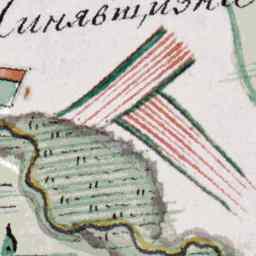 Синявщизна